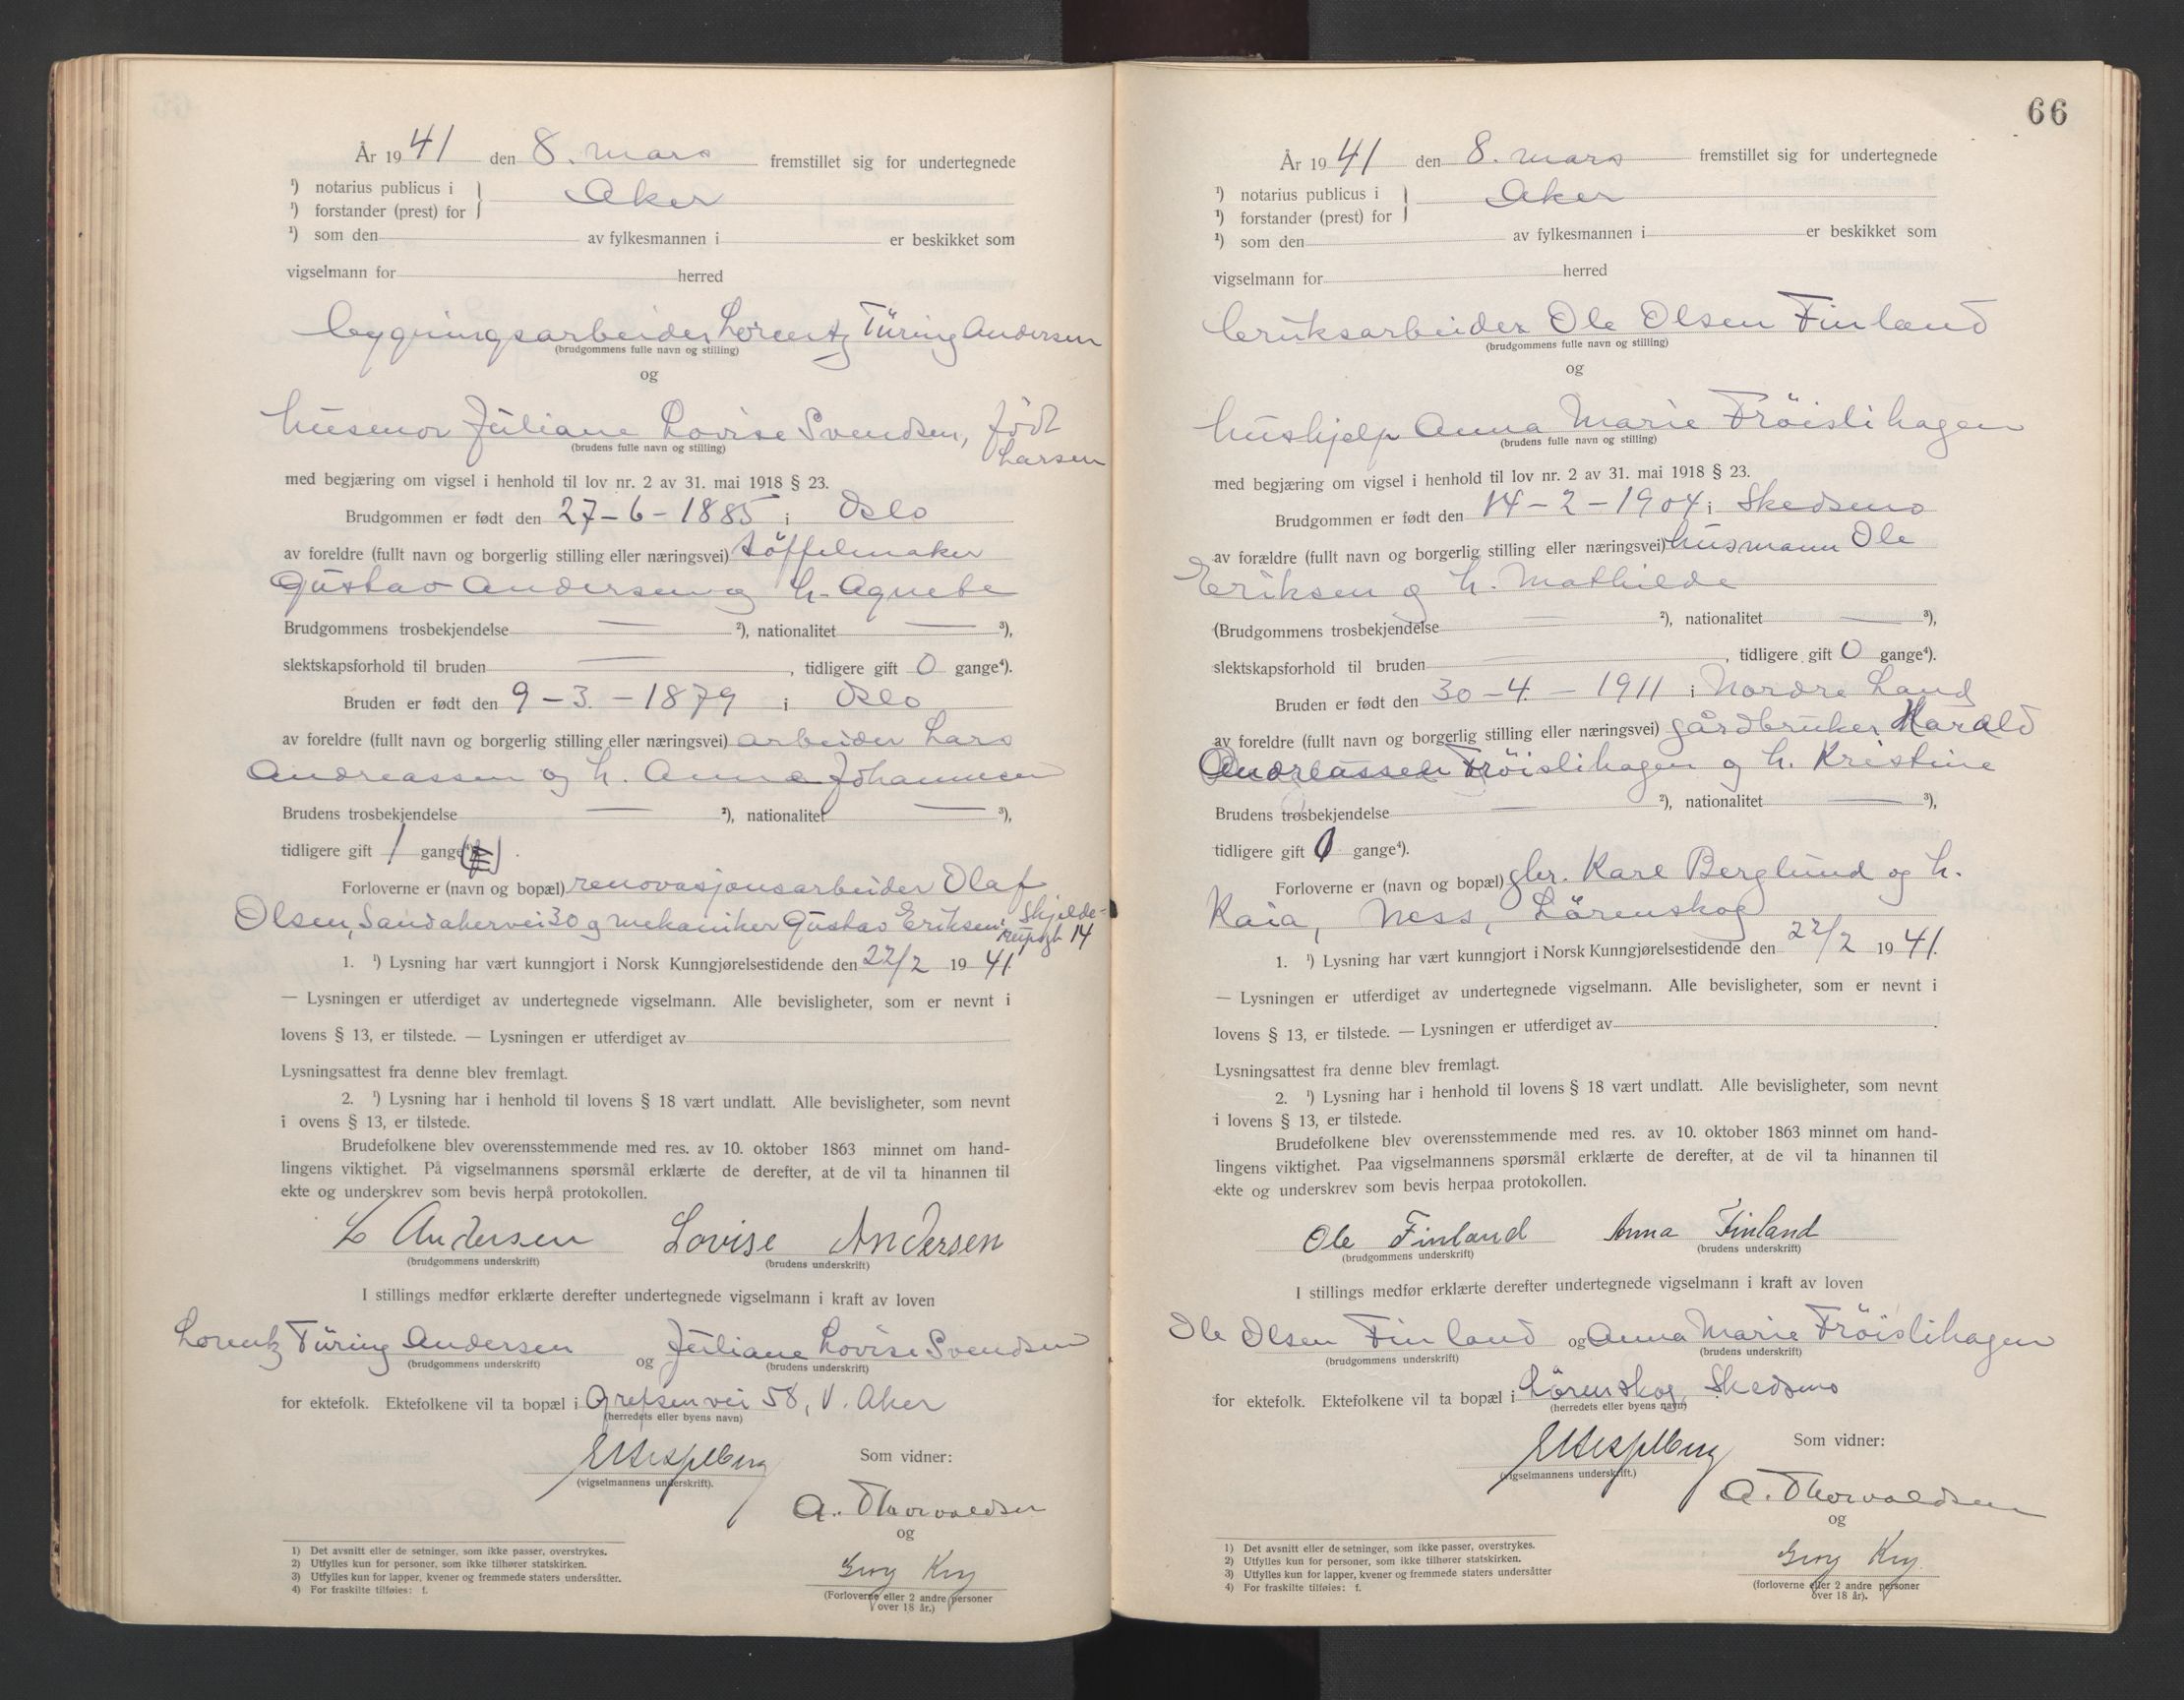 År 1941 den 8. mars fremstillet sig for undertegnede
¹) notarius publicus i } Aker
¹) forstander (prest) for
¹) som den av fylkesmannen i er beskikket som
vigselmann for herred
bygningsarbeider Lorentz Türing Andersen
(brudgommens fulle navn og stilling)
og
husmor Juliane Lovise Svendsen, født
Larsen
(brudens fulle navn og stilling)
med begjæring om vigsel i henhold til lov nr. 2 av 31. mai 1918 § 23.
Brudgommen er født den 27-6-1885 i Oslo
av foreldre (fullt navn og borgerlig stilling eller næringsvei) töffelmaker
Gustav Andersen og h. Agnete
Brudgommens trosbekjendelse — ²), nationalitet — ³),
slektskapsforhold til bruden — , tidligere gift 0 gange⁴).
Bruden er født den 9-3.-1879 i Oslo
av foreldre (fullt navn og borgerlig stilling eller næringsvei) arbeider Lars
Andreassen og h. Anna Johannesen
Brudens trosbekjendelse — ²), nationalitet — ³),
tidligere gift 1 gange⁴).
Forloverne er (navn og bopæl) renovasjonsarbeider Olaf
Olsen, Sandakervei 30 og mekaniker Gustav Eriksen, Skjelde-
rupsgt 14
1. ¹) Lysning har vært kunngjort i Norsk Kunngjørelsestidende den 22/2 1941.
— Lysningen er utferdiget av undertegnede vigselmann. Alle bevisligheter, som er nevnt i
lovens § 13, er tilstede. — Lysningen er utferdiget av
Lysningsattest fra denne blev fremlagt.
2. ¹) Lysning har i henhold til lovens § 18 vært undlatt. Alle bevisligheter, som nevnt
i ovens § 13, er tilstede.
Brudefolkene blev overensstemmende med res. av 10. oktober 1863 minnet om hand-
lingens viktighet. På vigselmannens spørsmål erklærte de derefter, at de vil ta hinannen til
ekte og underskrev som bevis herpå protokollen.
L Andersen Lovise Andersen
(brudgommens underskrift) (brudens underskrift)
I stillings medfør erklærte derefter undertegnede vigselmann i kraft av loven
Lorentz Türing Andersen og Juliane Lovise Svendsen
(brudgommens underskrift) (brudens underskrift)
for ektefolk. Ektefolkene vil ta bopæl i Grefsenvei 58, V. Aker
(herredets eller byens navn)
Som vidner:
(vigselmannens underskrift).
A. Thorvaldsen
og
(Forloverne eller 2 andre personer
over 18 år.)
1) Det avsnitt eller de setninger, som ikke passer, overstrykes.
2) Utfylles kun for personer, som ikke tilhører statskirken.
3) Utfylles kun for lapper, kvener og fremmede staters undersåtter.
4) For fraskilte tilføies: f.
66
År 1941 den 8. mars fremstillet sig for undertegnede
¹) notarius publicus i } Aker
¹) forstander (prest) for
¹) som den av fylkesmannen i er beskikket som
vigselmann for herred
bruksarbeider Ole Olsen Finland
(brudgommens fulle navn og stilling)
og
hushjelp Anna Marie Fröislihagen
(brudens fulle navn og stilling)
med begjæring om vigsel i henhold til lov nr. 2 av 31. mai 1918 § 23.
Brudgommen er født den 14-2-1904 i Skedsmo
av forældre (fullt navn og borgerlig stilling eller næringsvei) husmann Ole
Eriksen og h. Mathilde
(Brudgommens trosbekjendelse — ²), nationalitet — ³),
slektskapsforhold til bruden — , tidligere gift 0 gange⁴).
Bruden er født den 30-4.-1911 i Nordre Land
av foreldre (fullt navn og borgerlig stilling eller næringsvei) gårdbruker Harald
Andreassen Fröislihagen og h. Kristine
Brudens trosbekjendelse — ²), nationalitet — ³),
tidligere gift 0 gange⁴).
Forloverne er (navn og bopæl) gbr. Kare Berglund og h.
Kaia, Ness, Lörenskog
1. ¹) Lysning har vært kunngjort i Norsk Kunngjørelsestidende den 22/2 1941.
— Lysningen er utferdiget av undertegnede vigselmann. Alle bevisligheter, som er nevnt i
lovens § 13, er tilstede. — Lysningen er utferdiget av
Lysningsattest fra denne blev fremlagt.
2. ¹) Lysning har i henhold til lovens § 18 vært undlatt. Alle bevisligheter, som nevnt
i lovens § 13, er tilstede.
Brudefolkene blev overensstemmende med res. av 10. oktober 1863 minnet om hand-
lingens viktighet. Paa vigselmannens spørsmål erklærte de derefter, at de vil ta hinannen til
ekte og underskrev som bevis herpaa protokollen.
Ole Finland Anna Finland
(brudgommens underskrift) (brudens underskrift)
I stillings medfør erklærte derefter undertegnede vigselmann i kraft av loven
Ole Olsen Finland og Anna Marie Fröislihagen
(brudgommens underskrift) (brudens underskrift)
for ektefolk. Ektefolkene vil ta bopæl i Lörenskog, Skedsmo
(herredets eller byens navn)
Som vidner:
(vigselmannens underskrift.)
A. Thorvaldsen
og
(forloverne eller 2 andre personer
over 18 år).
1) Det avsnitt eller de setninger, som ikke passer, overstrykes.
2) Utfylles kun for personer, som ikke tilhører statskirken.
3) Utfylles kun for lapper, kvener og fremmede staters undersåtter
4) For fraskilte tilføies: f.